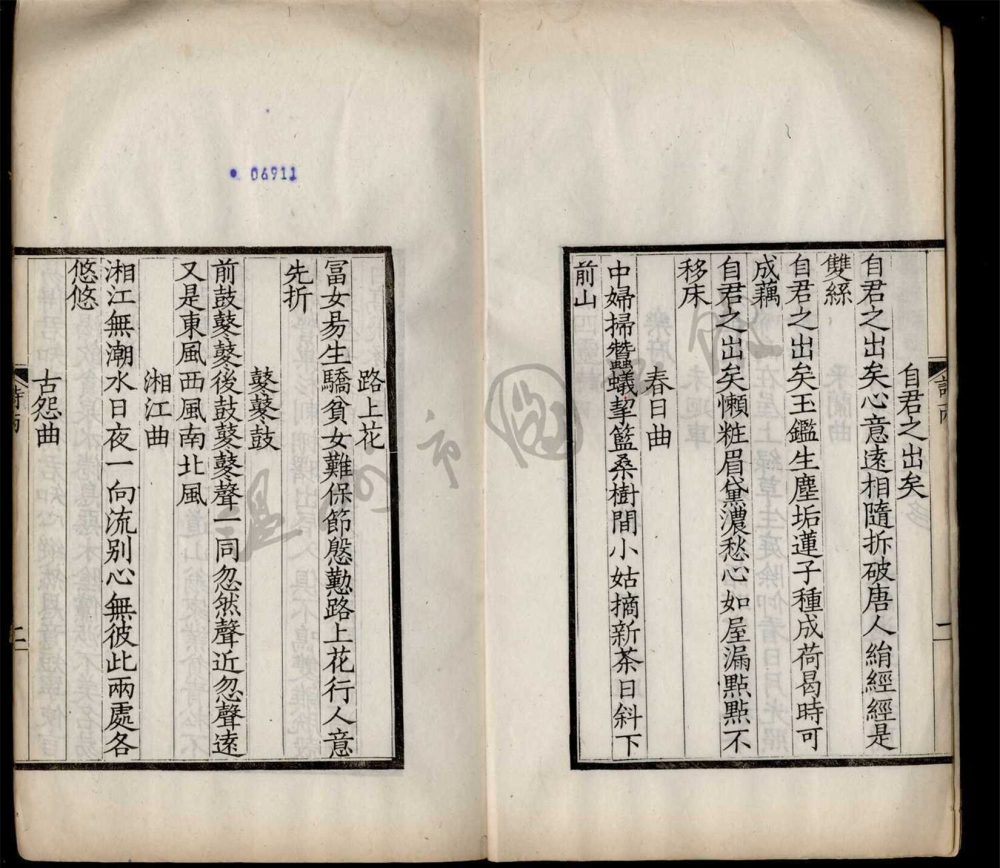 自君之出矣
自君之出矣心意遠相隨拆破唐人絹經經是
雙絲
自君之出矣玉鑑生塵垢蓮子種成荷曷時可
成藕
自君之出矣懶粧眉黛濃愁心如屋漏點點不
移床
春日曲
中婦掃蠶蟻挈籃桑樹間小姑摘新茶日斜下
前山
路上花
冨女昜生驕貧女難保節慇懃路上花行人意
先折
鼕鼕鼓
前鼓鼕鼕後鼓鼕鼕聲一同忽然聲近忽聲遠
又是東風西風南北風
湘江曲
湘江無潮水日夜一向流別心無彼此兩處各
悠悠
古怨曲
二
06911